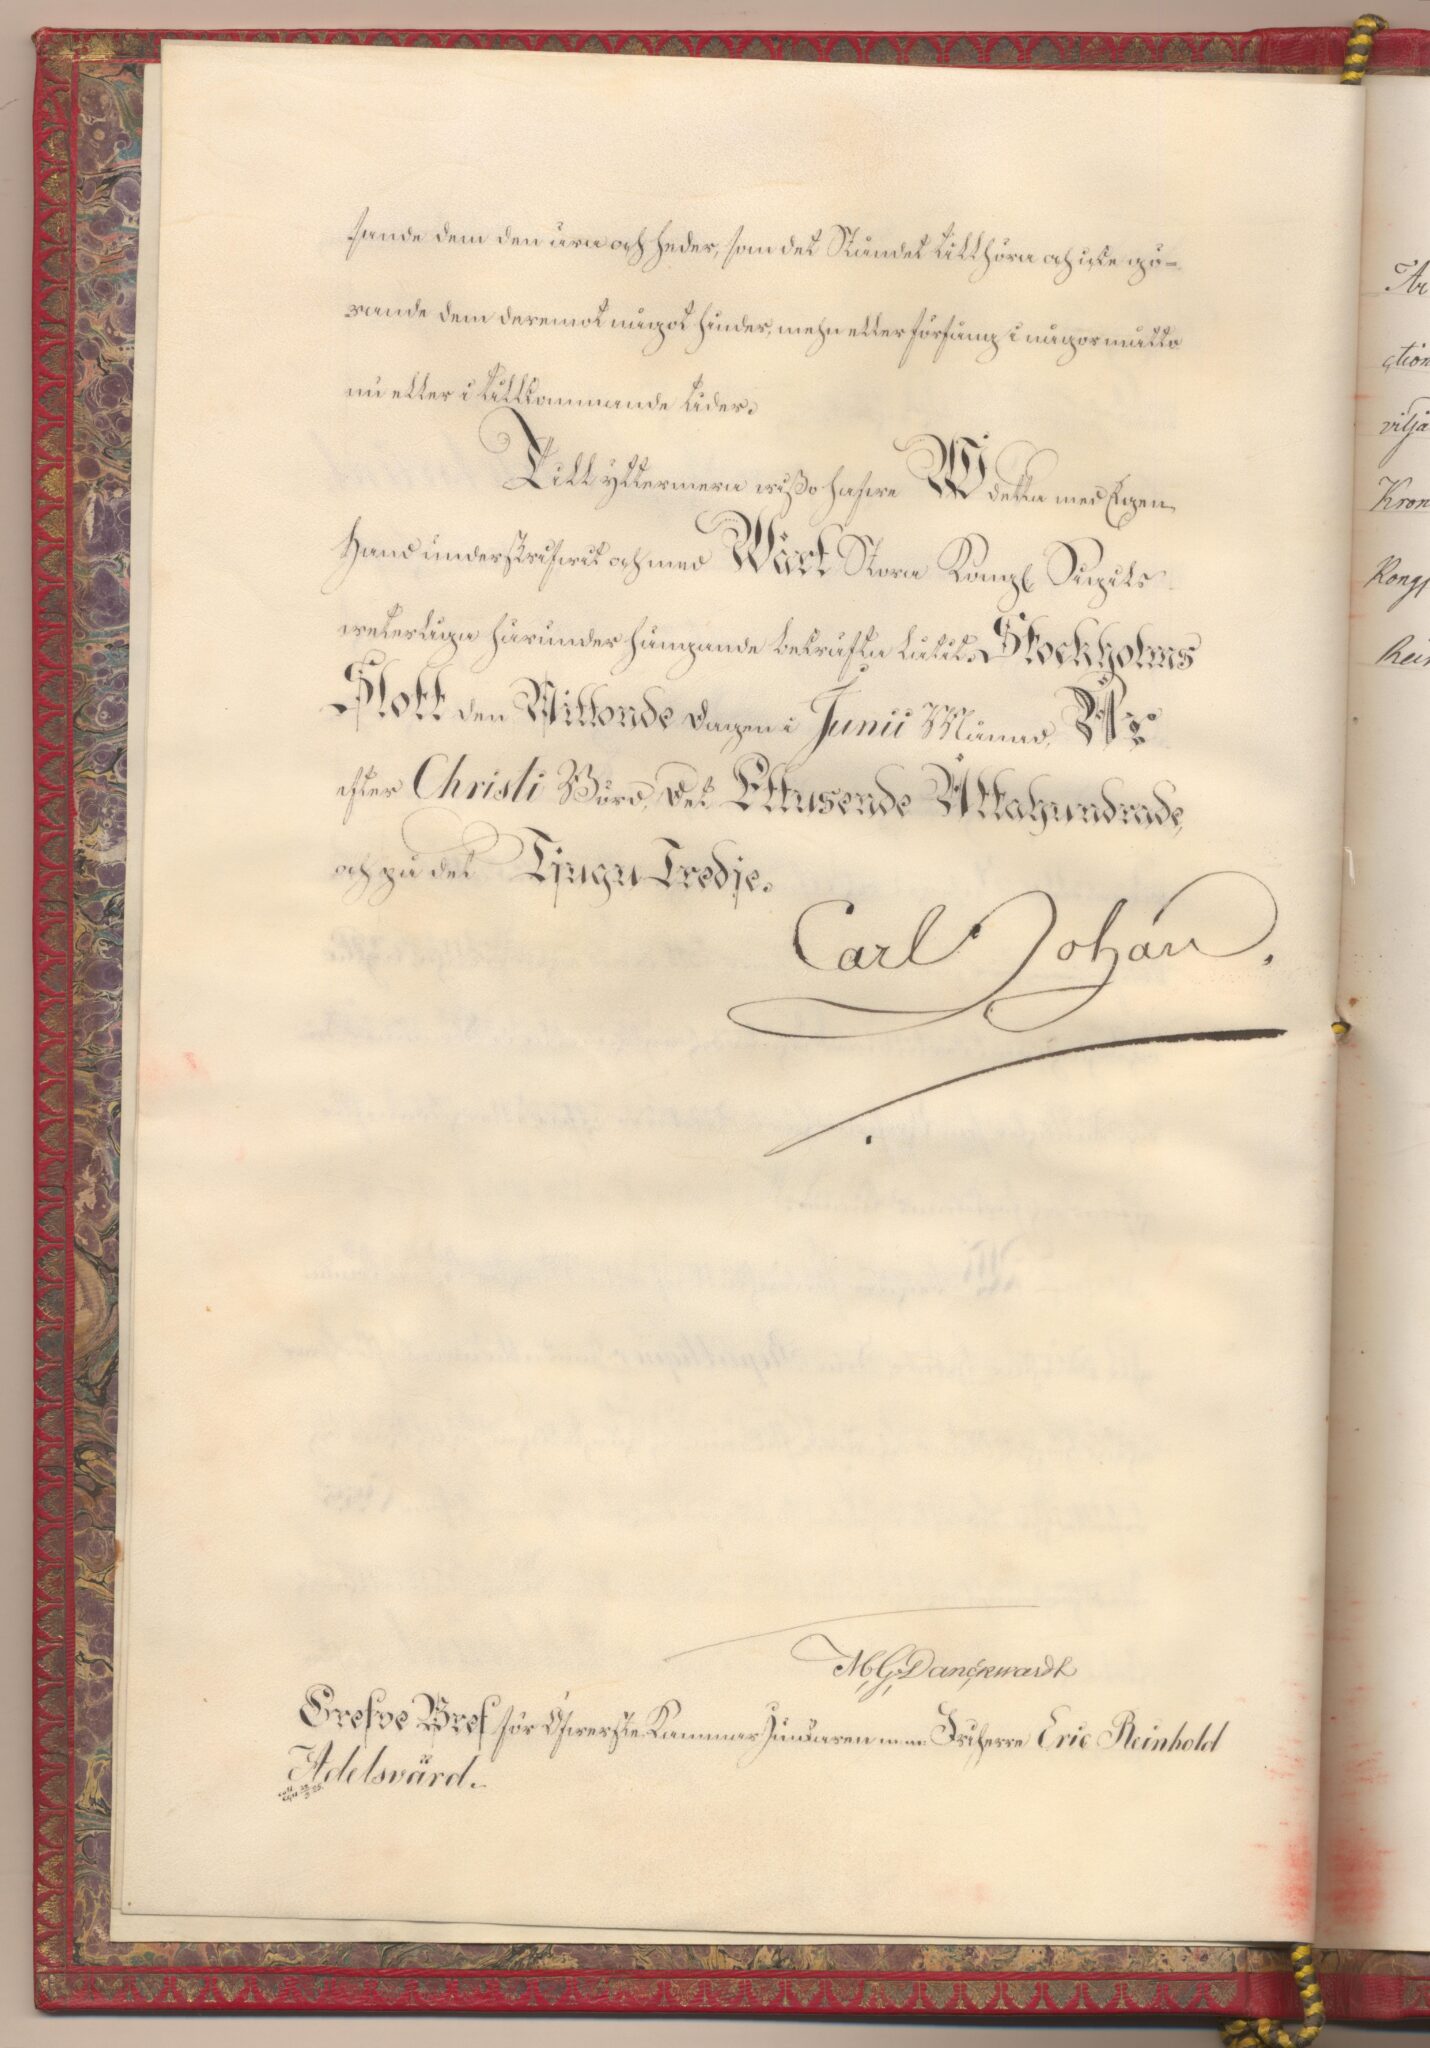 sande dem den ära och heder, som det Ståndet tillhöra och icke gö-
rande dem deremot något hinder, mehn eller förfång i någor måtto
nu eller i tillkommande tider.
Till yttermera wißo hafwe Wi detta med Egen
Hand underskrifwit och med Wårt Stora Kongl. Sigills
weterliga härunder hängande bekräfta låtit. Stockholms
Slott den Nittonde Dagen i Junii Månad, År
efter Christi Börd, Det Ettusende Åttahundrade,
och på det Tjugu Tredje.
Carl Johan.
M. G. Danckwardt
Grefve Bref för Öfwerste Kammar Junkaren m. m. Friherre Eric Reinhold
Adelsvärd.
Ar
ction
vilja
Kron
Kongl
Rein